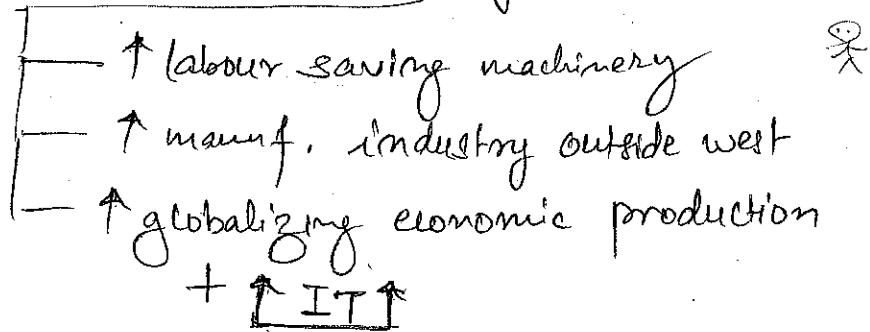 ↑ labour saving machinery
↑ manuf. industry outside west
↑ globalizing economic production
+ ↑ IT ↑